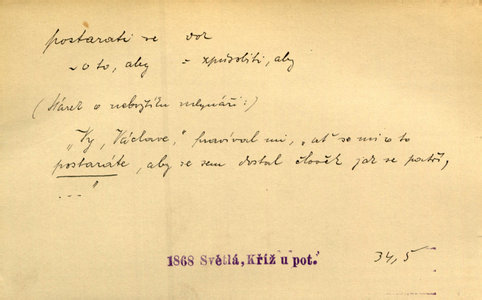 postarati se dok
~ o to, aby = způsobiti, aby
(Márek o nebožtíku mlynáři:)
"Vy, Václave," pravíval mi, "ať se mi o to
postaráte, aby se sem dostal člověk jak se patří,
..."
1868 Světlá, Kříž u pot.
34,5